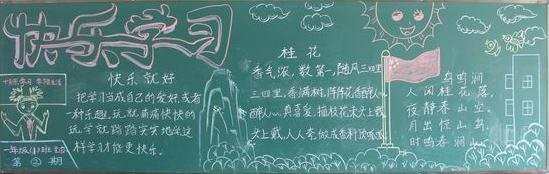 快乐学习
快乐就好
把学习当成自己的爱好,或者
一种乐趣,玩就痛痛快快的
玩,学就踏踏实实地学,这
样学习才能更快乐。
一年级(1)班主办
第②期
桂花
香气浓,数第一,随风三四里
三四里,香满树,阵阵花香醉人
真喜爱,摘枝花朵头上戴
头上戴,人人夸,
鸟鸣涧
人闲桂花落,
夜静春山空。
月出惊山鸟,
时鸣春涧中。